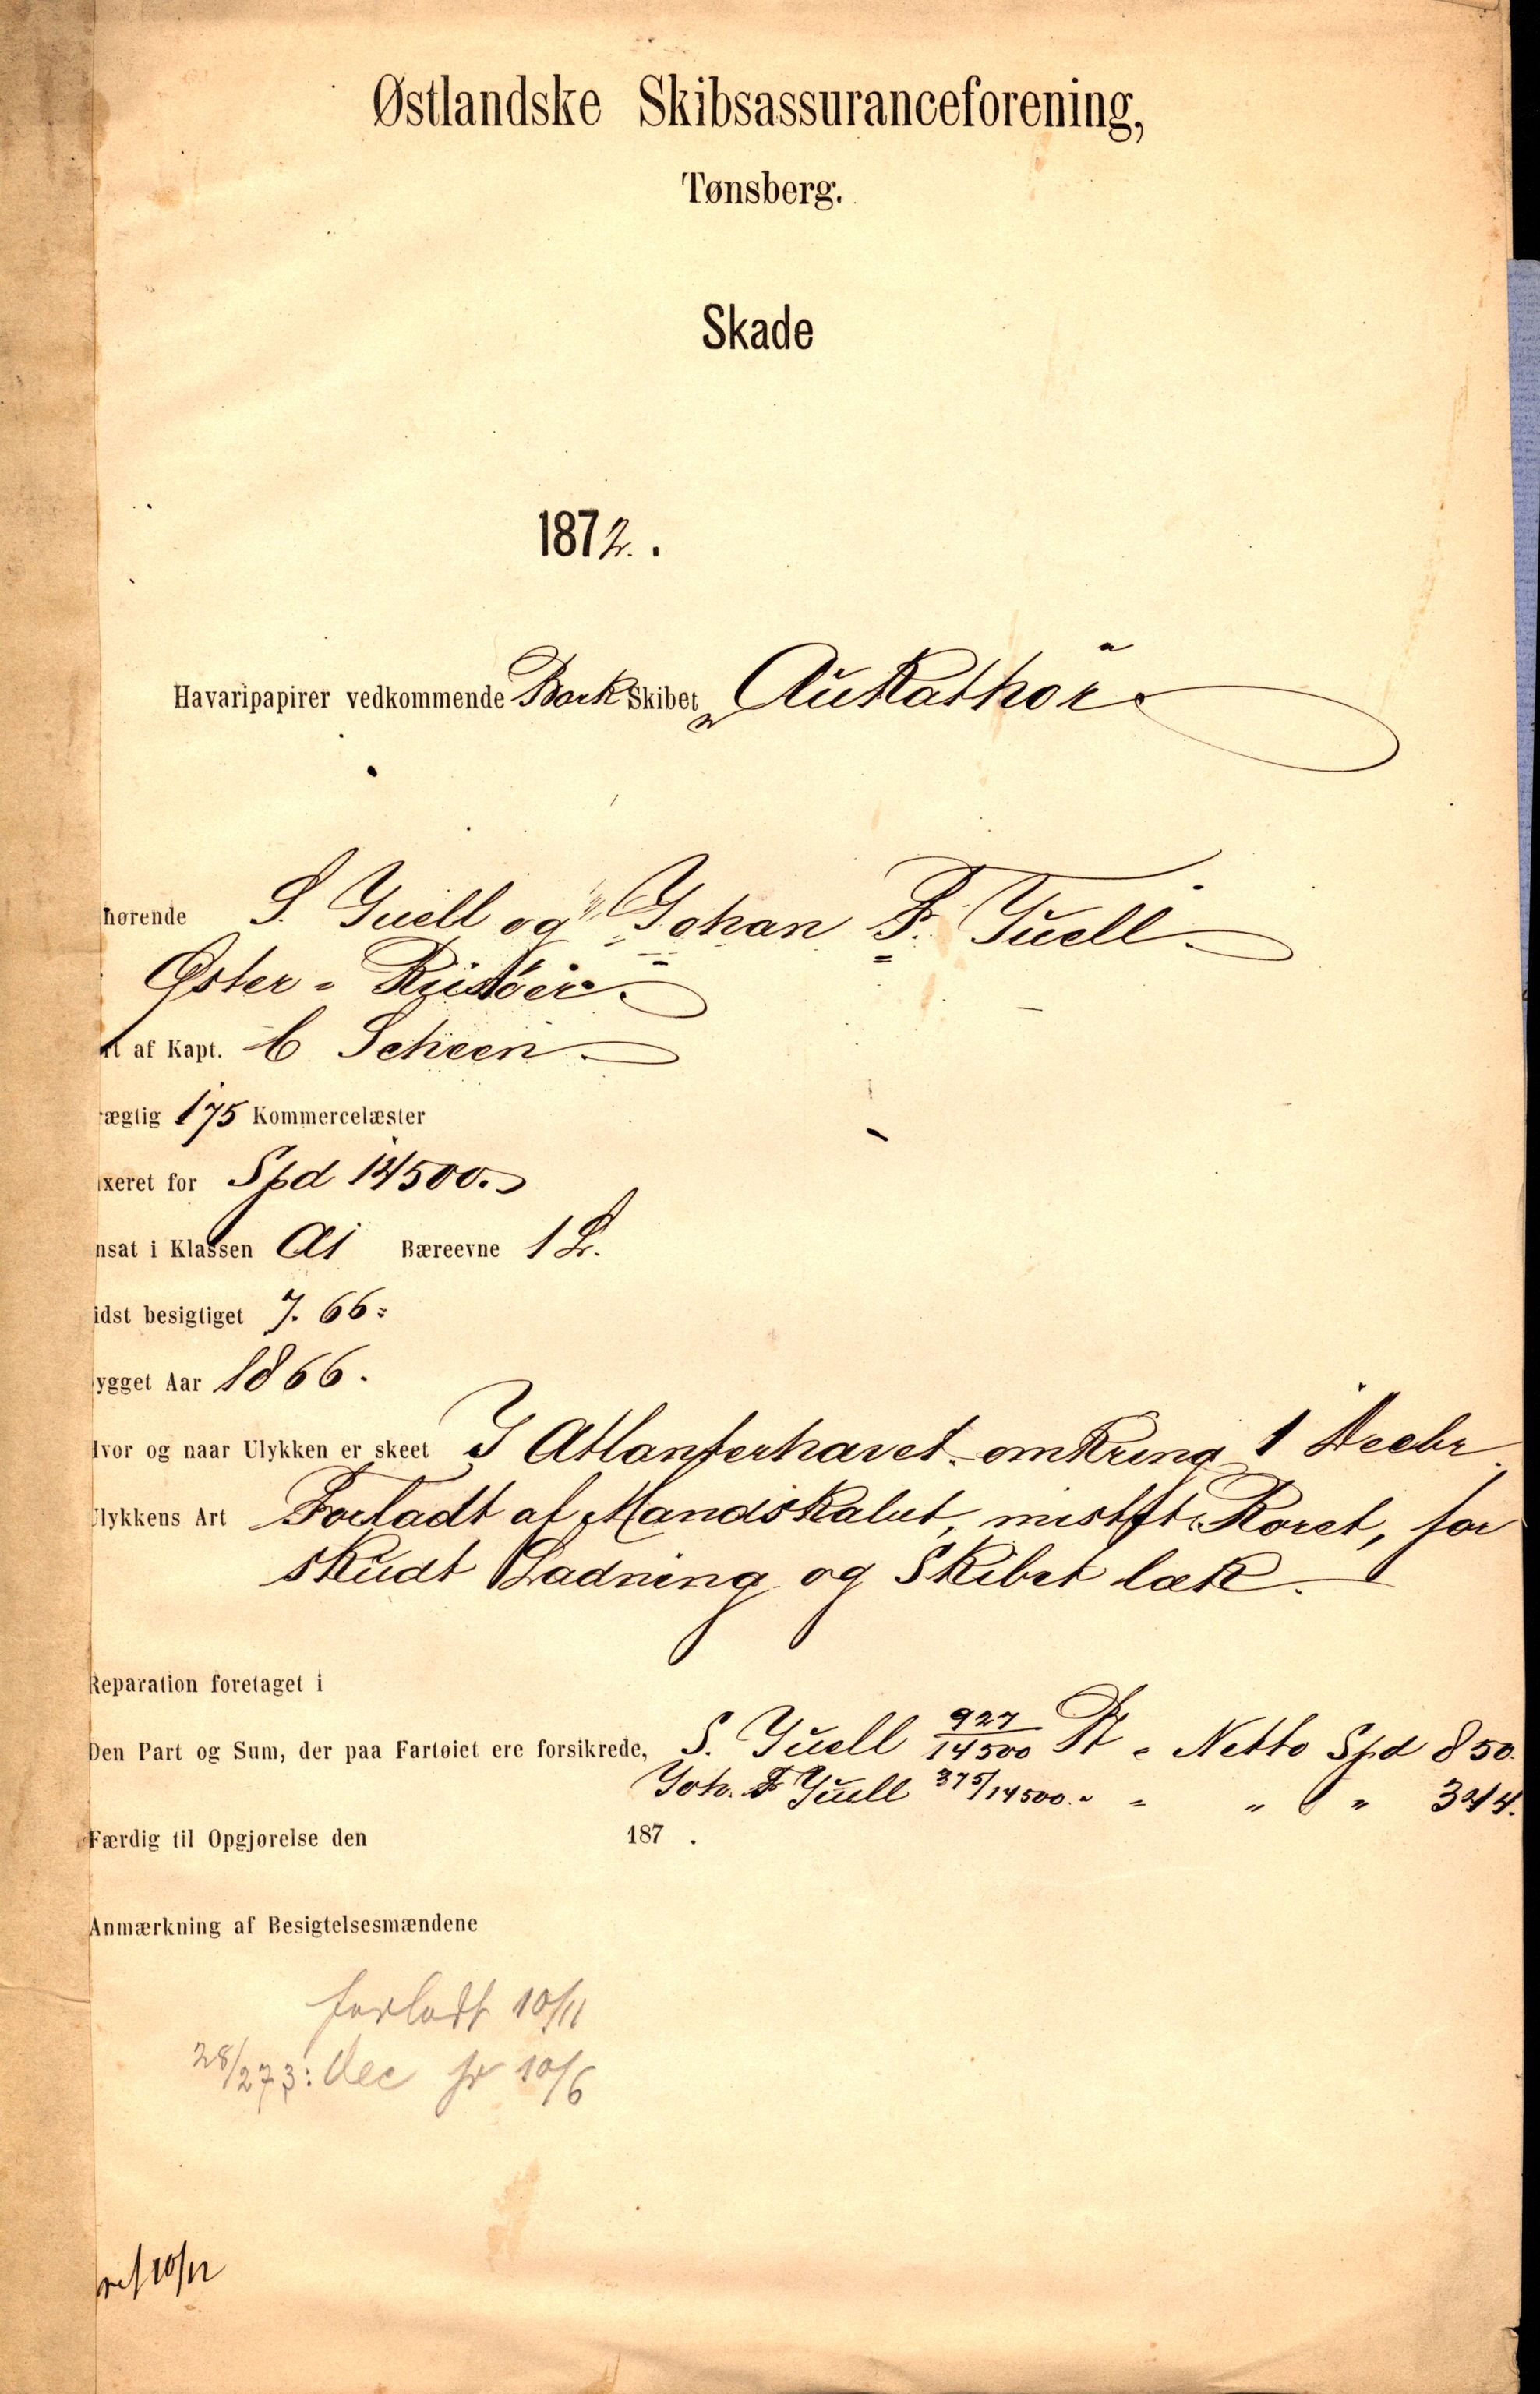 Østlandske Skibsassuranceforening,
Tønsberg.
Skade
1872.
Havaripapirer vedkommende Bark Skibet „Aukathor“
hørende S. Juell og Johan F. Juell
Øster-Riisøer.
rt af Kapt. C Scheen
rægtig 175 Kommercelæster
axeret for Spd 14500.
nsat i Klassen A1 Bæreevne 1 L.
idst besigtiget 7. 66.
ygget Aar 1866.
Hvor og naar Ulykken er skeet I Atlanterhavet omkring 1 Decbr
Ulykkens Art Forladt af Mandskabet, mistet Roret, for
skudt Ladning og Skibet læk.
Reparation foretaget i
Den Part og Sum, der paa Fartøiet ere forsikrede, S. Juell 927/14500 Pt - Netto Spd 850.
Joh. F Juell 375/14500 " - " " 344.
Færdig til Opgjørelse den 187 .
Anmærkning af Besigtelsesmændene
forladt 10/11
28/2 73: Dec fr 10/6
10/12